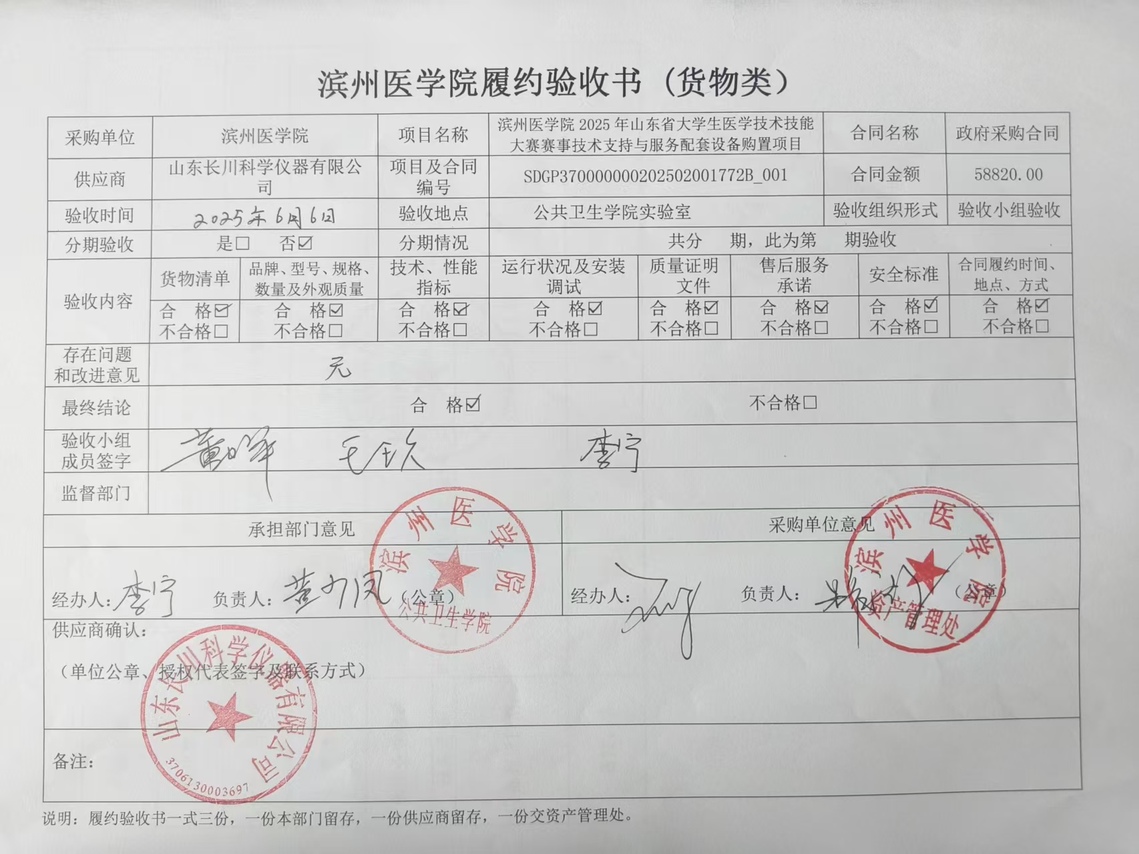 滨州医学院履约验收书（货物类）
采购单位 滨州医学院 项目名称 滨州医学院 2025 年山东省大学生医学技术技能大赛赛事技术支持与服务配套设备购置项目 合同名称 政府采购合同
供应商 山东长川科学仪器有限公司 项目及合同编号 SDGP370000000202502001772B_001 合同金额 58820.00
验收时间 2025年6月6日 验收地点 公共卫生学院实验室 验收组织形式 验收小组验收
分期验收 是☐ 否☑ 分期情况 共分 期，此为第 期验收
验收内容 货物清单 品牌、型号、规格、数量及外观质量 技术、性能指标 运行状况及安装调试 质量证明文件 售后服务承诺 安全标准 合同履约时间、地点、方式
合 格☑ 合 格☑ 合 格☑ 合 格☑ 合 格☑ 合 格☑ 合 格☑ 合 格☑
不合格☐ 不合格☐ 不合格☐ 不合格☐ 不合格☐ 不合格☐ 不合格☐ 不合格☐
存在问题和改进意见 无
最终结论 合 格☑ 不合格☐
验收小组成员签字 李宁
监督部门
承担部门意见 采购单位意见
经办人：李宁 负责人： （公章） 经办人： 负责人： （公章）
滨州医学院
公共卫生学院
滨州医学院
资产管理处
供应商确认：
（单位公章、授权代表签字及联系方式）
山东长川科学仪器有限公司
3706130003697
备注：
说明：履约验收书一式三份，一份本部门留存，一份供应商留存，一份交资产管理处。